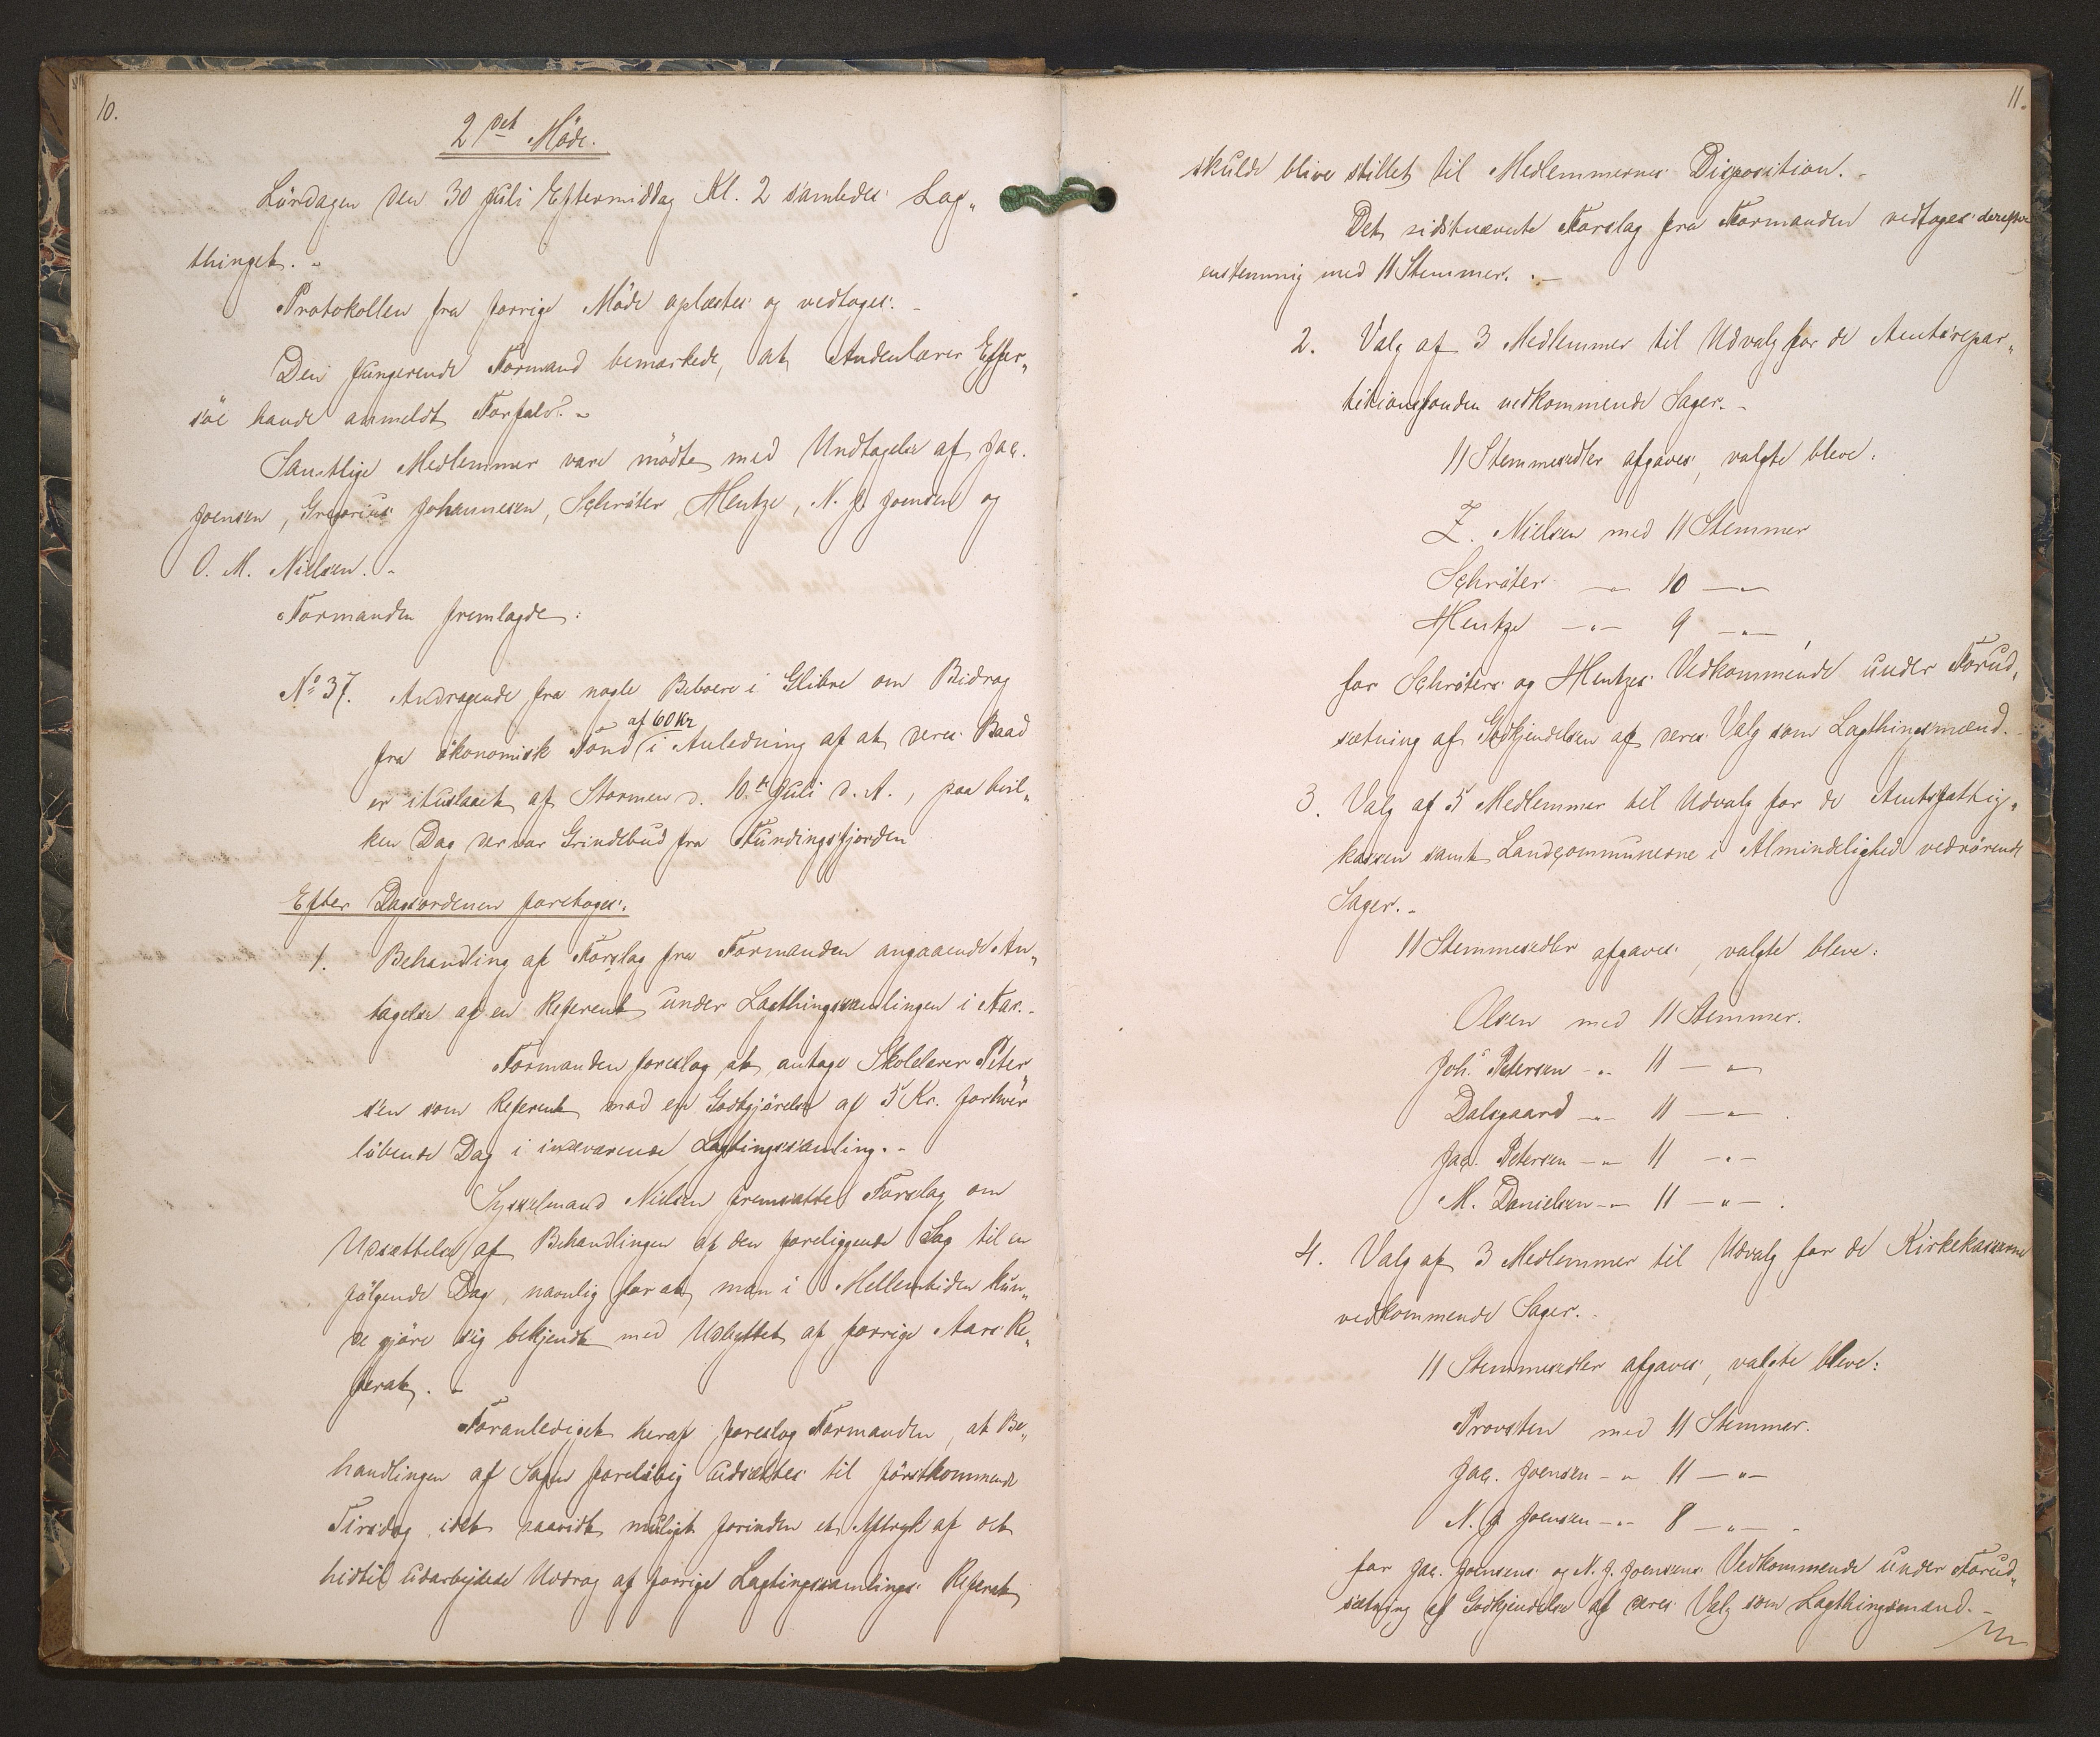 10.
2det Möde.
Lördagen den 30 Juli Eftermiddag Kl. 2 samledes Lag„
thinget. -
Protokollen fra forrige Möde oplæstes og vedtoges. -
Den fungerende Formand bemærkede, at Andenlærer Effer„
söe havde anmeldt Forfald. -
Samtlige Medlemmer vare mödte med Undtagelse af Jac.
Joensen, Gregorius Johannesen, Schröter, Hentze, N. J. Joensen og
O. M. Nielsen. -
Formanden fremlagde:
No 37. Andragende fra nogle Beboere i Glibre om Bidrag
af 60 Kr
fra ökonomisk Fond i Anledning af at deres Baad
er ituslaaet af Stormen d. 10.de Juli d. A., paa hvil„
ken Dag der var Grindebud fra Fundingsfjorden
Efter Dagsordenen foretoges:
1. Behandling af Forslag fra Formanden angaaende An„
tagelse af en Referent under Lagthingssamlingen i Aar. -
Formanden foreslog at antage Skolelærer Peter„
sen som Referent mod en Godtgjörelse af 5 Kr. for hver
löbende Dag i indeværende Lagtingssamling. -
Sysselmand Nielsen fremsatte Forslag om
Udsættelse af Behandlingen af den foreliggende Sag til en
fölgende Dag, navnlig for at man i Mellemtiden kun„
de gjöre sig bekjendt med Udbyttet af forrige Aars Re„
ferat. -
Foranlediget heraf foreslog Formanden, at Be„
handlingen af Sagen forelöbig udsættes til förstkommende
Tirsdag, idet saavidt muligt forinden et Aftryk af det
hidtil udarbejdede Uddrag af forrige Lagtingssamlings Referat
11.
skulde blive stillet til Medlemmernes Disposition. -
Det sidstnævnte Forslag fra Formanden vedtoges derefter
enstemmig med 11 Stemmer. -
2. Valg af 3 Medlemmer til Udvalg for de Amtsrepar„
titionsfonden vedkommende Sager. -
11 Stemmesedler afgaves, valgte bleve:
Z. Nielsen med 11 Stemmer
Schröter -„- 10 -„-
Hentze -„- 9 -„-
for Schröters og Hentzes Vedkommende under Forud„
sætning af Godkjendelsen af deres Valg som Lagthingsmænd. -
3. Valg af 5 Medlemmer til Udvalg for de Amtsfattig„
kassen samt Landcommunerne i Almindelighed vedrörende
Sager. -
11 Stemmesedler afgaves, valgte bleve:
Olsen med 11 Stemmer.
Joh. Petersen -„- 11 -„-
Dalsgaard -„- 11 -„-
Jac. Petersen -„- 11 -„-
M. Danielsen -„- 11 -„-
4. Valg af 3 Medlemmer til Udvalg for de Kirkekasserne
vedkommende Sager. -
11 Stemmesedler afgaves, valgte bleve:
Provsten med 11 Stemmer.
Jac. Joensen -„- 11 -„-
N. J Joensen -„- 8 -„-
for Jac. Joensens og N. J. Joensens Vedkommende under Forud„
sætning af Godkjendelse af deres Valg som Lagthingsmænd. -